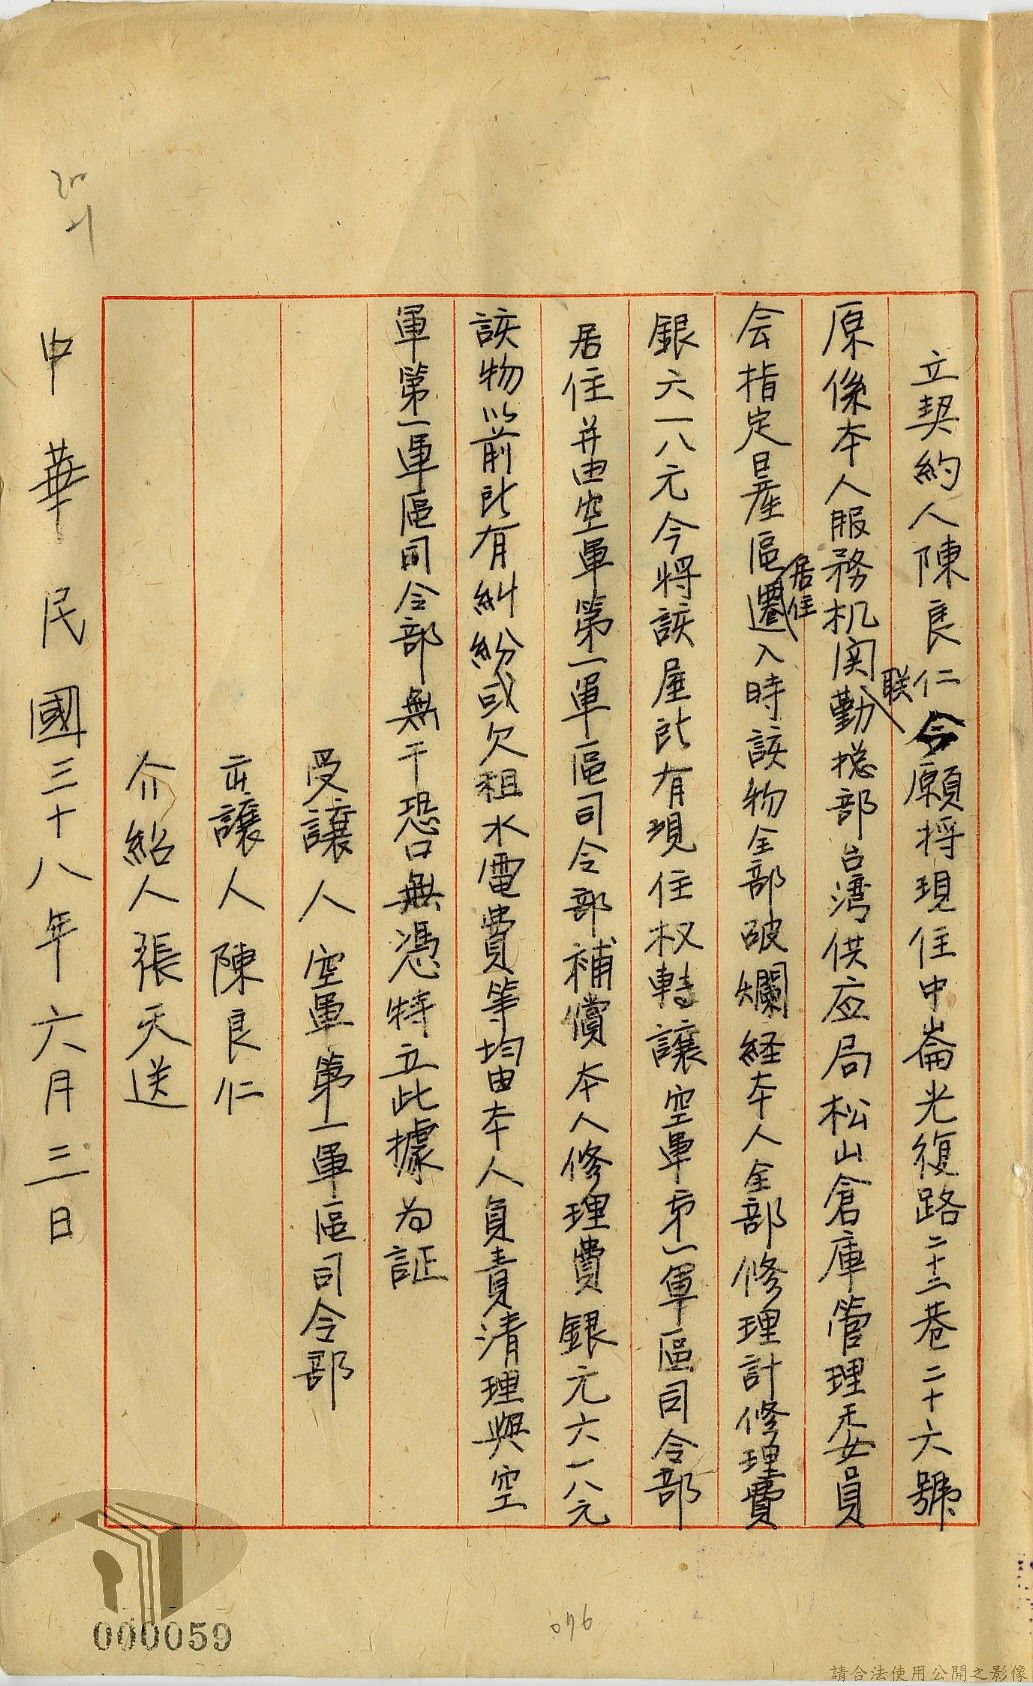 立契約人陳良仁今願将現住中崙光復路二十三巷二十六號
原係本人服務机関勤聯總部台湾供应局松山倉庫管理委員
会指定是產區遷居住入時該物全部破爛経本人全部修理計修理費
銀六一八元今將該屋所有現住权轉讓空軍第一軍區司令部
居住并由空軍第一軍區司令部補償本人修理費銀元六一八元
該物以前所有糾紛或欠租水電費等均由本人負責清理與空
軍第一軍區司令部無干恐口無憑特立此據為証
受讓人空軍第一軍區司令部
出讓人陳良仁
介紹人張天送
中華民國三十八年六月三日
000059
076
請合法使用公開之影像